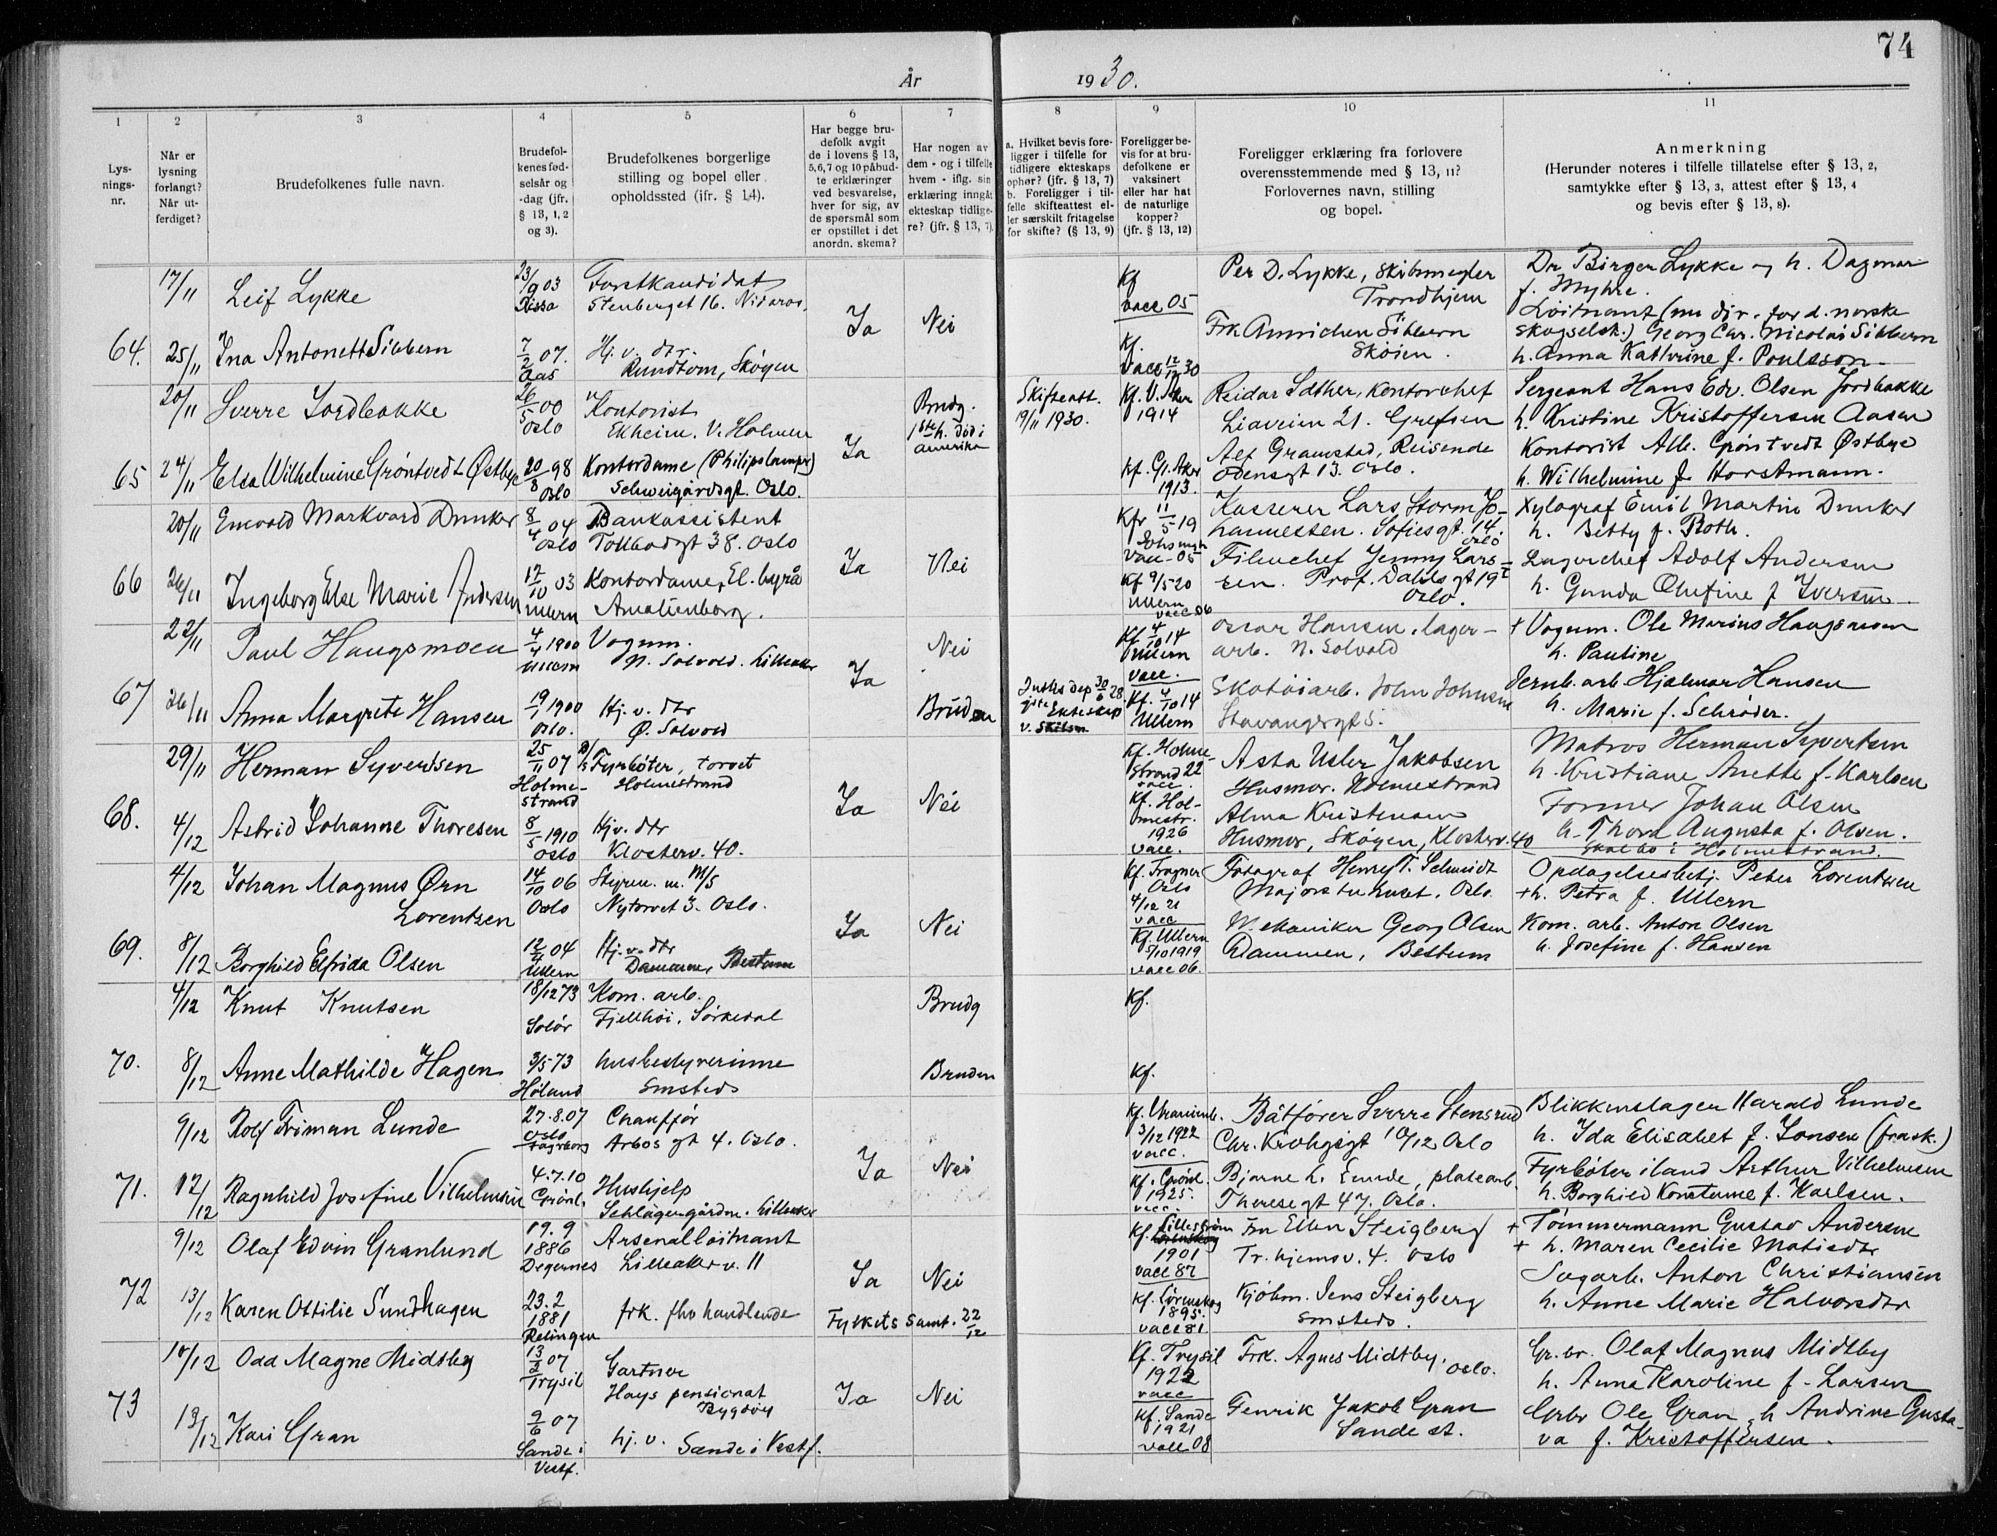 74
År 1930.
1 2 3 4 5 6 7 8 9 10 11
Lysnings-nr.
Når er lysning forlangt? Når utferdiget?
Brudefolkenes fulle navn.
Brudefolkenes fødselsår og -dag (jfr. § 13, 1, 2 og 3).
Brudefolkenes borgerlige stilling og bopel eller opholdssted (jfr. § 14).
Har begge brudefolk avgit de i lovens § 13, 5,6,7 og 10 påbudte erklæringer ved besvarelse, hver for sig, av de spørsmål som er opstillet i det anordn. skema?
Har nogen av dem - og i tilfelle hvem - iflg. sin erklæring inngått ekteskap tidligere? (jfr. § 13, 7).
a. Hvilket bevis foreligger i tilfelle for tidligere ekteskaps ophør? (jfr. § 13, 7) b. Foreligger i tilfelle skifteattest eller særskilt fritagelse for skifte? (§ 13, 9)
Foreligger bevis for at brudefolkene er vaksinert eller har hat de naturlige kopper? (jfr. § 13, 12)
Foreligger erklæring fra forlovere overensstemmende med § 13, 11? Forlovernes navn, stilling og bopel.
Anmerkning (Herunder noteres i tilfelle tillatelse efter § 13, 2, samtykke efter § 13, 3, attest efter § 13, 4 og bevis efter § 13, 8).
17/11 Leif Lykke 23/9 03 Rissa Forstkandidat Stenberget 16. Nidaros. Kf vacc 05 Per D. Lykke, skibsmegler Trondhjem Dr. Birger Lykke og h. Dagmar f. Myhre.
64. 25/11 Ina Antonette Sibbern 7/2 07. Aas Hj. v. dtr. Rundtom, Skøyen Ja Nei Kf. vacc 12/12 30 Frk Annichen Sibbern Skøien. Løitnant (nu dir. for d. norske skogselsk.) Georg Chr. Nicolai Sibbern h. Anna Kathrine f. Poulsson.
20/11 Sverre Jordbakke 26/5 00 Oslo Kontorist Ekheim. V. Holmen Brudg. 1ste h. død i Amerika Skifteatt. 19/11 1930. Kf. V. Aker 1914 Reidar Sæther, kontorchef Liaveien 21. Grefsen Sergeant Hans Edv. Olsen Jordbakke h. Kristine Kristoffersen Aasen
65 24/11 Elsa Wilhelmine Grøntvedt Østbye 20/8 98 Oslo Kontordame (Philipslamper) Schweigårdsgt. Oslo. Ja Kf. Gr. Aker 1913. Alf Gramstad, Reisende Odensgt 13. Oslo. Kontorist Alb. Grøntvedt Østbye h. Wilhelmine f. Horstmann.
20/11 Enevold Markvard Dunker 8/4 04 Oslo Bankassistent Tollbodgt 38. Oslo Kfr 11/5 19 Vacc. 05 Kasserer Lars Storm Johannessen. Sofiesgt. 14. Oslo Xylograf Emil Martin Dunker h. Betty f. Roth.
66 26/11 Ingeborg Else Marie Andersen 12/10 03 Ullern Kontordame, El. byrå Amalienborg. Ja Nei Kf 9/5 20 Ullern vacc 06 Filialchef Jenny Larsen. Prof. Dahls gt 19 I Oslo. Lagerchef Adolf Andersen h. Gunda Olufine f Iversen.
22/11 Paul Haugsmoen 4/4 1900 Ullern Vognm. N. Solvold. Lilleaker Nei Kf. 4/10 14 Ullern vacc. Oscar Hansen, lagerarb. N. Solvold + Vognm. Ole Marius Haugsmoen h. Pauline
67 26/11 Anna Margrete Hansen 19/1 1900 Oslo. Hj. v. dtr Ø. Solvold Ja Bruden Justisdep 30/6 28 Ekteskap Kf. 4/10 14 Ullern Skotøiarb. John Johnsen Stavangergt 5. Jernb. arb Hjalmar Hansen h. Marie f. Schrøder.
29/11 Herman Syvertsen 25/11 07 Holmestrand Fyrbøter, torvet Holmestrand Kf. Holmestrand 22 vacc. Asta Usler Jakobsen Husmor. Holmestrand Matros Herman Syvertsen h. Kristiane Anette f. Karlsen
68. 4/12 Astrid Johanne Thoresen 8/5 1910 Oslo Hj. v. dtr Klosterv. 40. Ja Nei Kf. Holmestr. 1926 vacc. Alma Kristensen Husmor, Skøyen, Klosterv. 40 Former Johan Olsen h. Thora Augusta f. Olsen. Skal bo i Holmestrand.
4/12 Johan Magnus Ørn Lorentzen 14/10 06 Oslo Styrm. m. M/S Nytorvet 3. Oslo. Kf. Fragner Oslo 4/12 21 vacc Fotograf Henry T. Schmidt Majorstuhuset. Oslo Opdagelsesbetj. Peter Lorentzen + h. Petra f. Ullern
69. 8/12 Borghild Elfrida Olsen 12/4 04 Ullern Hj. v. dtr Dammen, Bestum Ja Nei Kf. Ullern 5/10 1919 vacc 06. Mekaniker Georg Olsen Dammen, Bestum Kom. arb. Anton Olsen h. Josefine f. Hansen
4/12 Knut Knutsen 18/12 73 Solør Kom. arb. Fjellhøi, Sørkedal Brudg Kf.
70. 8/12 Anne Mathilde Hagen 3/5 73 Høland husbestyrerinne smsteds Bruden Kf.
9/12 Rolf Friman Lunde 27.8.07 Oslo Fagerborg Chauffør Arbos gt 4. Oslo. Kf. Uranienb. 3/12 1922 vacc. Båtfører Sverre Stensrud Chr. Krohgsgt 10/12 Oslo Blikkenslager Harald Lunde h. Ida Elisabet f. Jonsen (frask.)
71. 12/12 Ragnhild Josefine Vilhelmsen 4.7.10 Grønl. Hushjelp Schlagergården. Lilleaker Ja Nei Kf. Grønl 1925. vacc. Bjarne L. Emde, platearb. Theresegt 47. Oslo. Fyrbøter iland Arthur Vilhelmsen h. Borghild Konstanse f. Karlsen.
9/12 Olaf Edvin Granlund 19.9 1886 Degernes Arsenalløitnant Lilleakerv. 11 Kf. Lillestrøm 1901 vacc 87 Fru Ellen Steigberg Tr. hjemsv. 4. Oslo + Tømmermann Gustav Andersen + h. Maren Cecilie Matisdtr
72 13/12 Karen Ottilie Sundhagen 23.2 1881 Rælingen frk. fhv handlende Ja Nei Fylkets samt. 22/12 Kf. Lørenskog 1895. vacc 81. Kjøbm. Jens Steigberg smsteds. Sagarb. Anton Christiansen h. Anne Marie Halvorsdtr
10/12 Odd Magne Midtby 13/2 07 Trysil Gartner Hays pensionat Bygdøy Kf. Trysil 1922 vacc Frk. Agnes Midtby, Oslo. Gr. br. Olaf Magnus Midtby h. Anna Karoline f. Larsen
73 13/12 Kari Gran 9/6 07 Sande i Vestf. hj. v. Sande i Vestf. Ja Nei Kf. Sande 1921 vacc 08 Fenrik Jakob Gran Sande st. Grbr Ole Gran, h Andrine Gustava f. Kristoffersen.